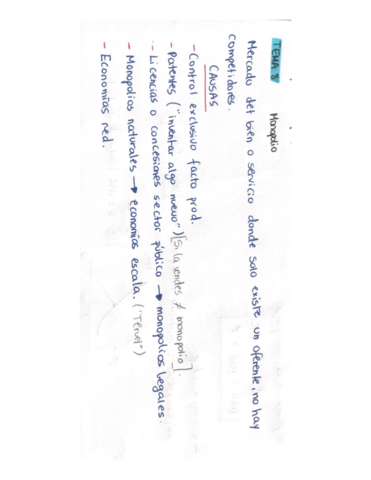 TEMA 8 Monopolio
Mercado det bien o servicio donde solo existe un oferente, no hay
competidores.
CAUSAS
- Control exclusivo facto prod.
- Patentes ("inventar algo nuevo") [si la vendes ≠ monopolio].
- Licencias o concesiones sector público → monopolios legales.
- Monopolios naturales → economías escala. ("Teruel")
- Economías red.